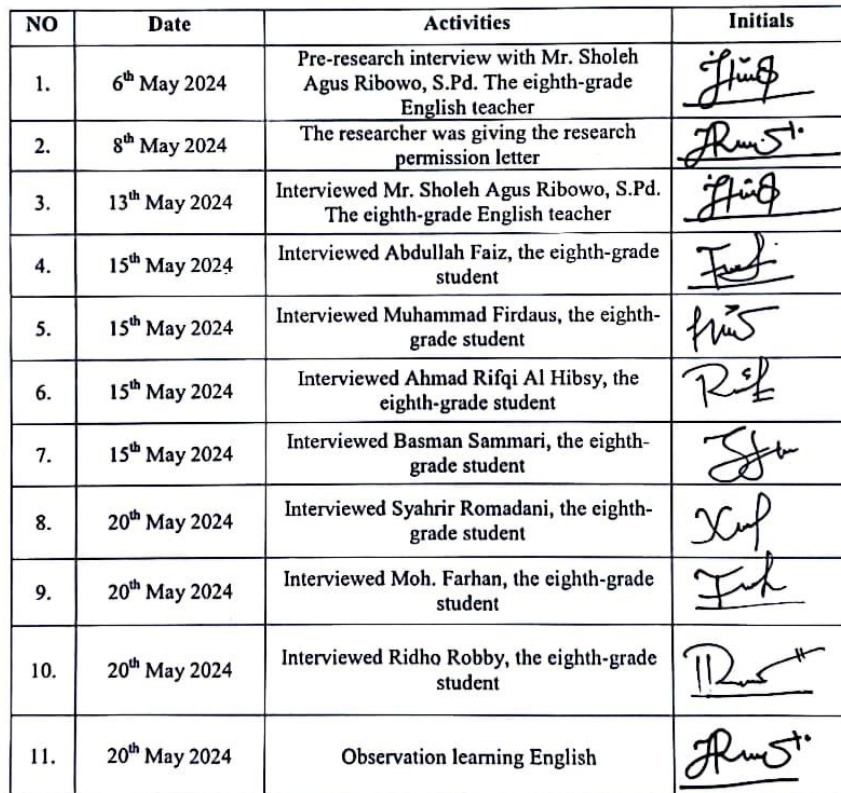 NO Date Activities Initials
1. 6th May 2024 Pre-research interview with Mr. Sholeh
Agus Ribowo, S.Pd. The eighth-grade
English teacher
2. 8th May 2024 The researcher was giving the research
permission letter
3. 13th May 2024 Interviewed Mr. Sholeh Agus Ribowo, S.Pd.
The eighth-grade English teacher
4. 15th May 2024 Interviewed Abdullah Faiz, the eighth-grade
student
5. 15th May 2024 Interviewed Muhammad Firdaus, the eighth-
grade student
6. 15th May 2024 Interviewed Ahmad Rifqi Al Hibsy, the
eighth-grade student
7. 15th May 2024 Interviewed Basman Sammari, the eighth-
grade student
8. 20th May 2024 Interviewed Syahrir Romadani, the eighth-
grade student
9. 20th May 2024 Interviewed Moh. Farhan, the eighth-grade
student
10. 20th May 2024 Interviewed Ridho Robby, the eighth-grade
student
11. 20th May 2024 Observation learning English